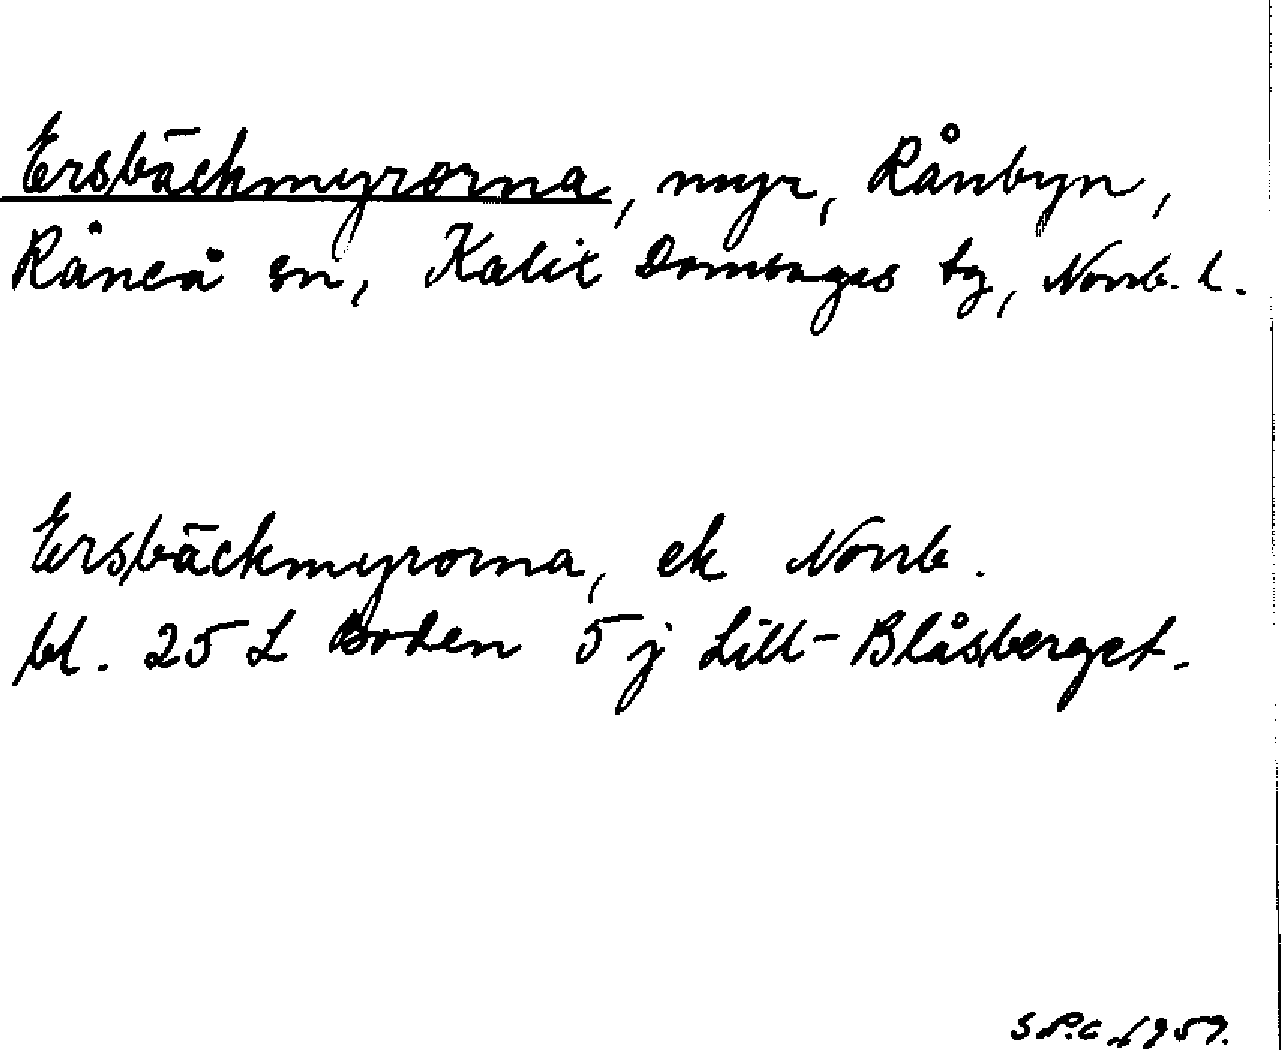 Ersbäckmyrorna, myr, Rånbyn,
Råneå sn, Kalix Domsagas tg, Norrb. l.
Ersbäckmyrorna, ek Norrb.
bl. 25 L Boden 5 j Lill-Blåsberget.
1959.